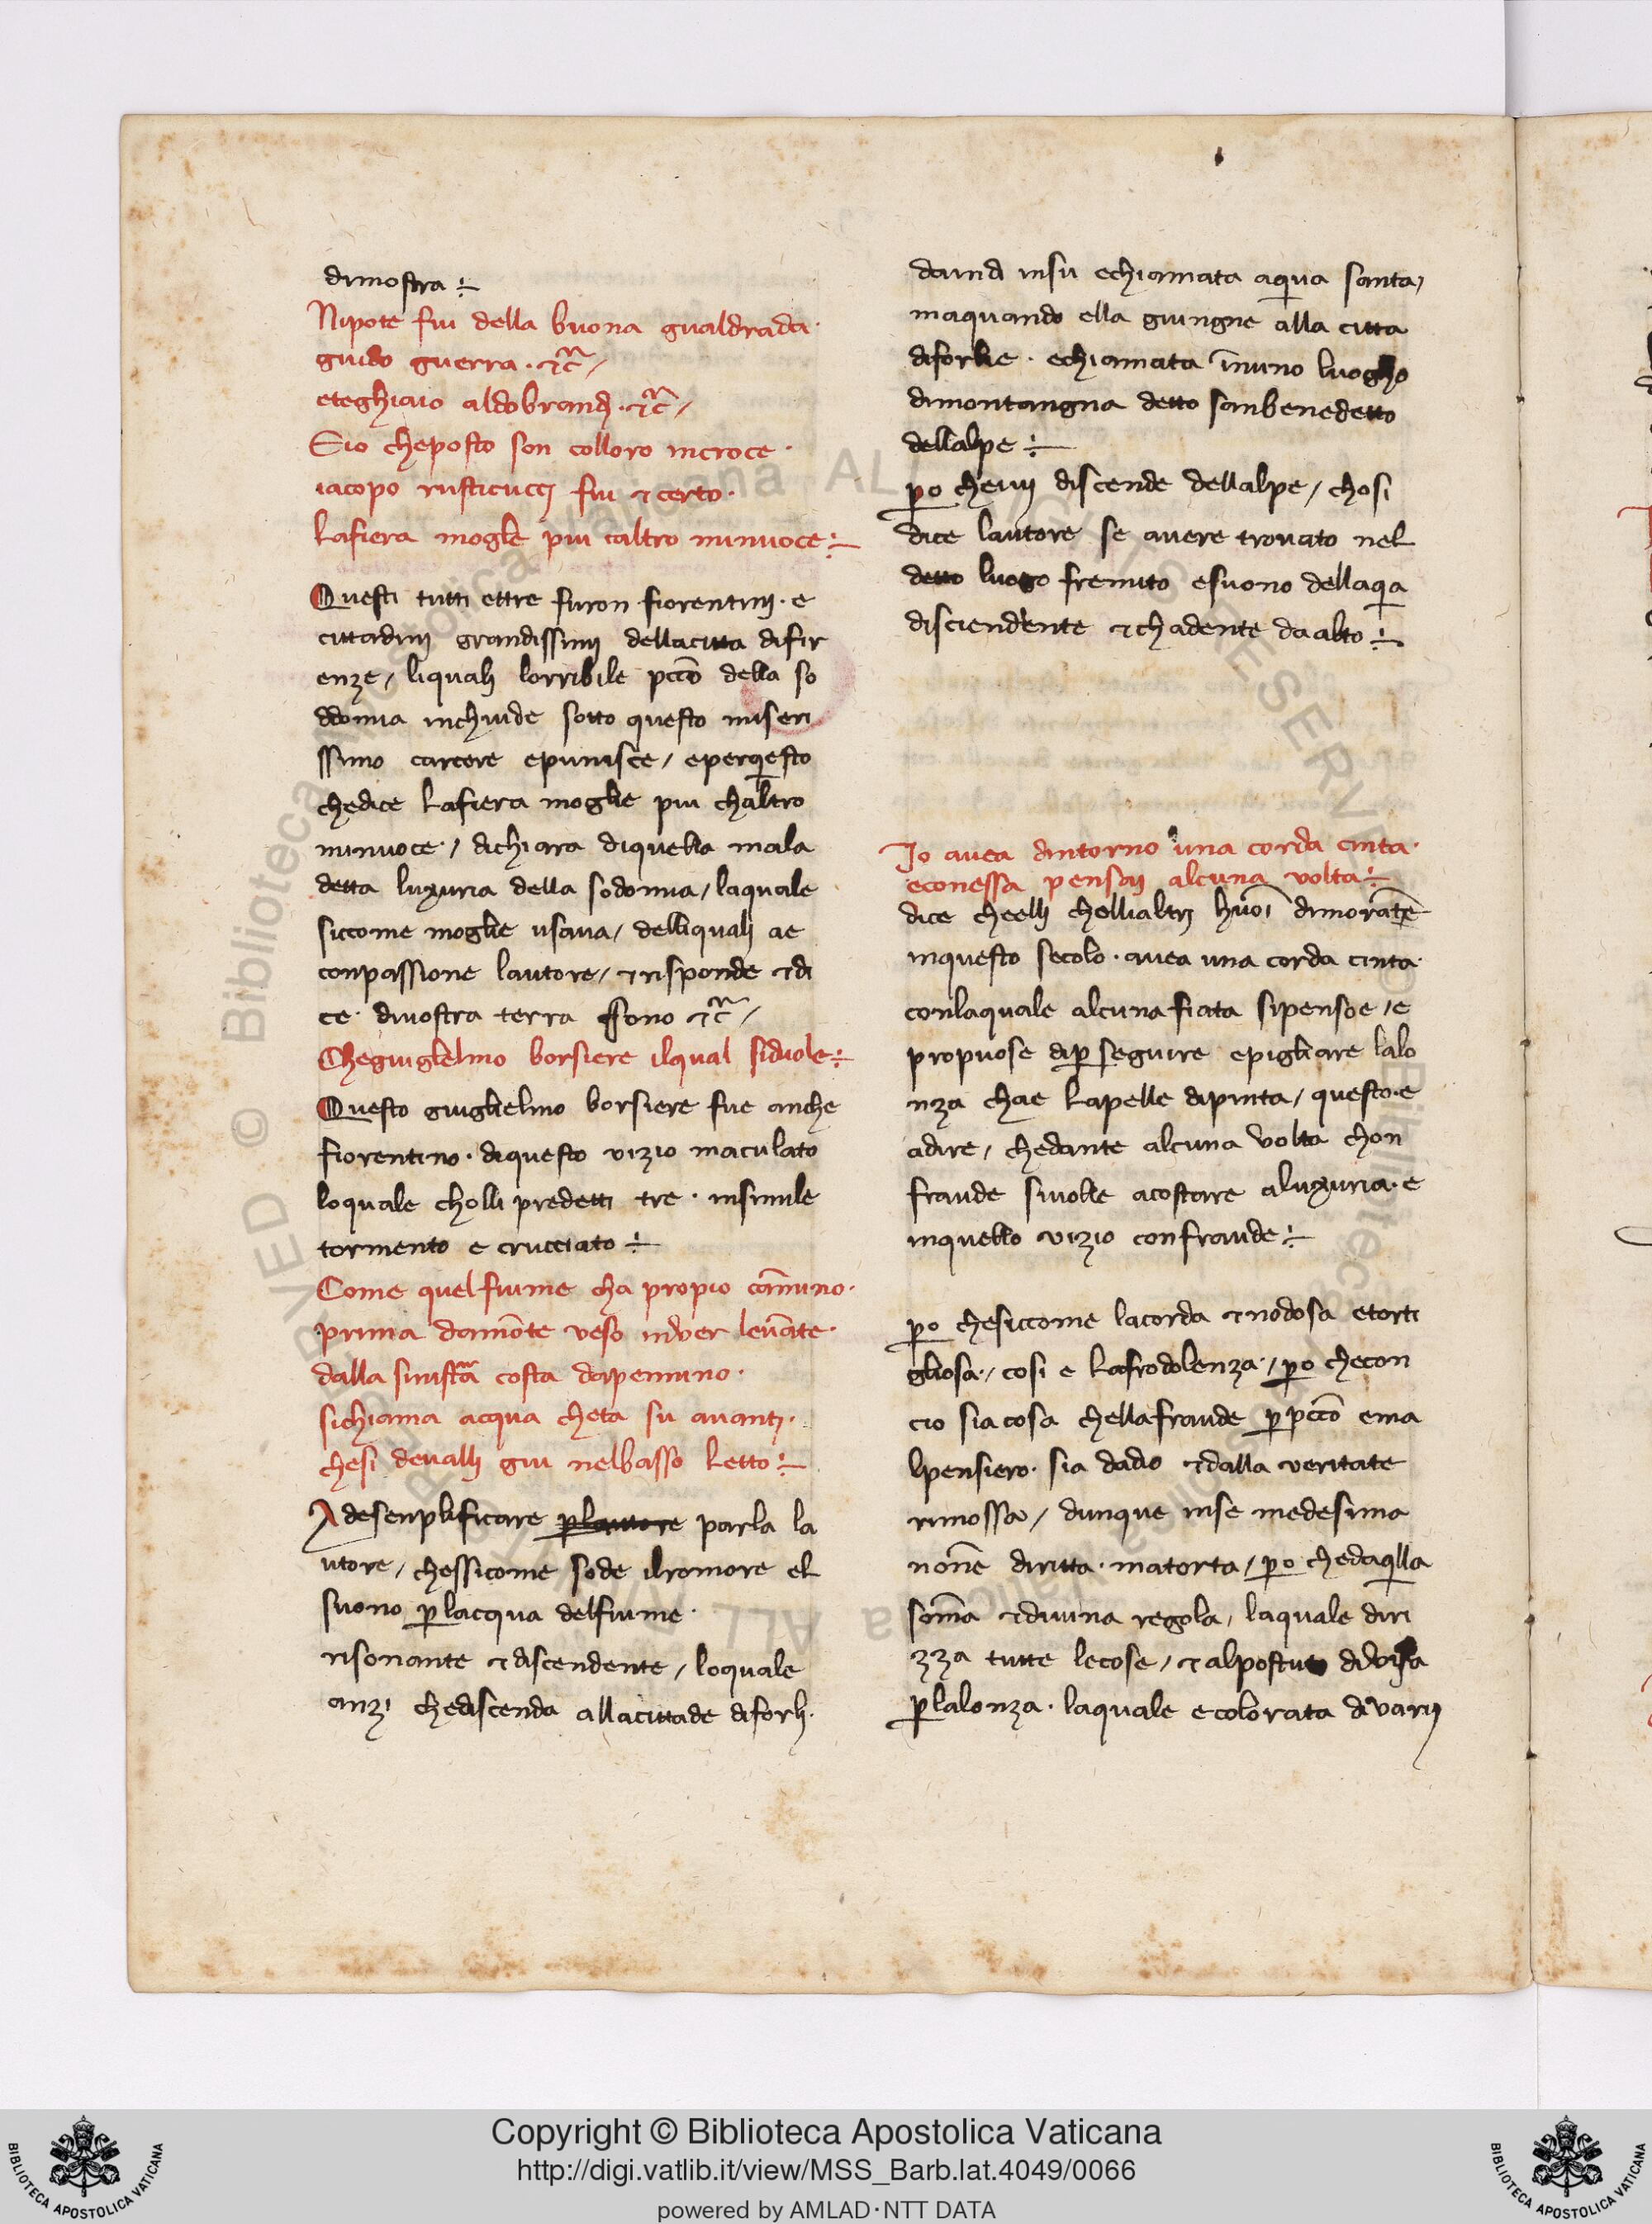 dimostra÷
Nipote fui della buona gualdrada·
guido guerra· ⁊c̃/
eteghiaio aldobrandj· ⁊c̃/
Eio cheposto son colloro incroce·
iacopo rusticuccj fui ⁊certo·
Lafiera mogle piu caltro minuoce÷
Questi tutti ettre furon fiorentinj· e
cittadinj grandissimj dellacitta difir
enze/ liqualj lorribile pccõ della so
ddomia inchiude sotto questo miseri
ssimo carcere epunisce/ eperqesto
chedice Lafiera moglie piu chaltro
minuoce·/ dichiara diquella mala
detta luxuria della sodomia/ laquale
siccome moglie usaua/ delliqualj ae
conpassione lautore/ ⁊risponde ⁊di
ce· diuostra terra sono ⁊c̃/
Cheguiglelmo borsiere ilqual siduole÷
Questo guiglielmo borsiere fue anche
fiorentino· diquesto vizio maculato
loquale cholli predetti tre· insimile
tormento e crucciato÷
Come quelfiume cha propio cãmino·
prima damõte veso inver leuãte·
dalla sinistra costa dapennino·
sichiama acqua cheta su auantj·
chesi deuallj giu nelbasso Letto÷
Adesenplificare p̱lauttore parla la
utore/ chessicome sode ilromore el
suono p̱lacqua delfiume·
risonante ⁊discendente/ loquale
anzi chediscenda allacittade diforlj·
dauindi insu echiamata aqua santa/
maquando ella giungne alla citta
diforlie· echiamata ĩnuno luogho
dimontangna detto sanbenedetto
dellalpe÷
p̱o cheuij discende dellalpe/ chosi
dice lautore se auere trouato nel
detto luogo fremito esuono dellaqa
disciendente ⁊chadente daalto÷
Io auea dintorno una corda cinta·
econessa pensaij alcuna volta÷
dice cheellj chelliahtrj huoĩ dimorãtẽ
inquesto secolo· auea una corda cinta·
conlaquale alcuna fiata sipensoe/ e
propuose dip̱seguire epigliare lalo
nza chae Lapelle dipinta/ questo·e
adire/ chedante alcuna volta chon
fraude siuolle acostare aluxuria· e
inquello vizio confraude÷
p̱o chesiccome lacorda ⁊nodosa etorti
gliosa·/ cosi e Lafrodolenza·/ p̱o checon
cio siacosa chellafraude p̱pccõ ema
lpensiero· sia dadio ⁊dalla veritate
rimossa/ dunque inse medesima
nonẽ diritta· matorta/ p̱o chedaqlla
som̃a ⁊diuina regola/ laquale diri
zza tutte lecose/ ⁊alpostuto diuisa
p̱lalonza· laquale ecolorata divarij
Copyright © Biblioteca Apostolica Vaticana
http://digi.vatlib.it/view/MSS_Barb.lat.4049/0066
powered by AMLAD·NTT DATA